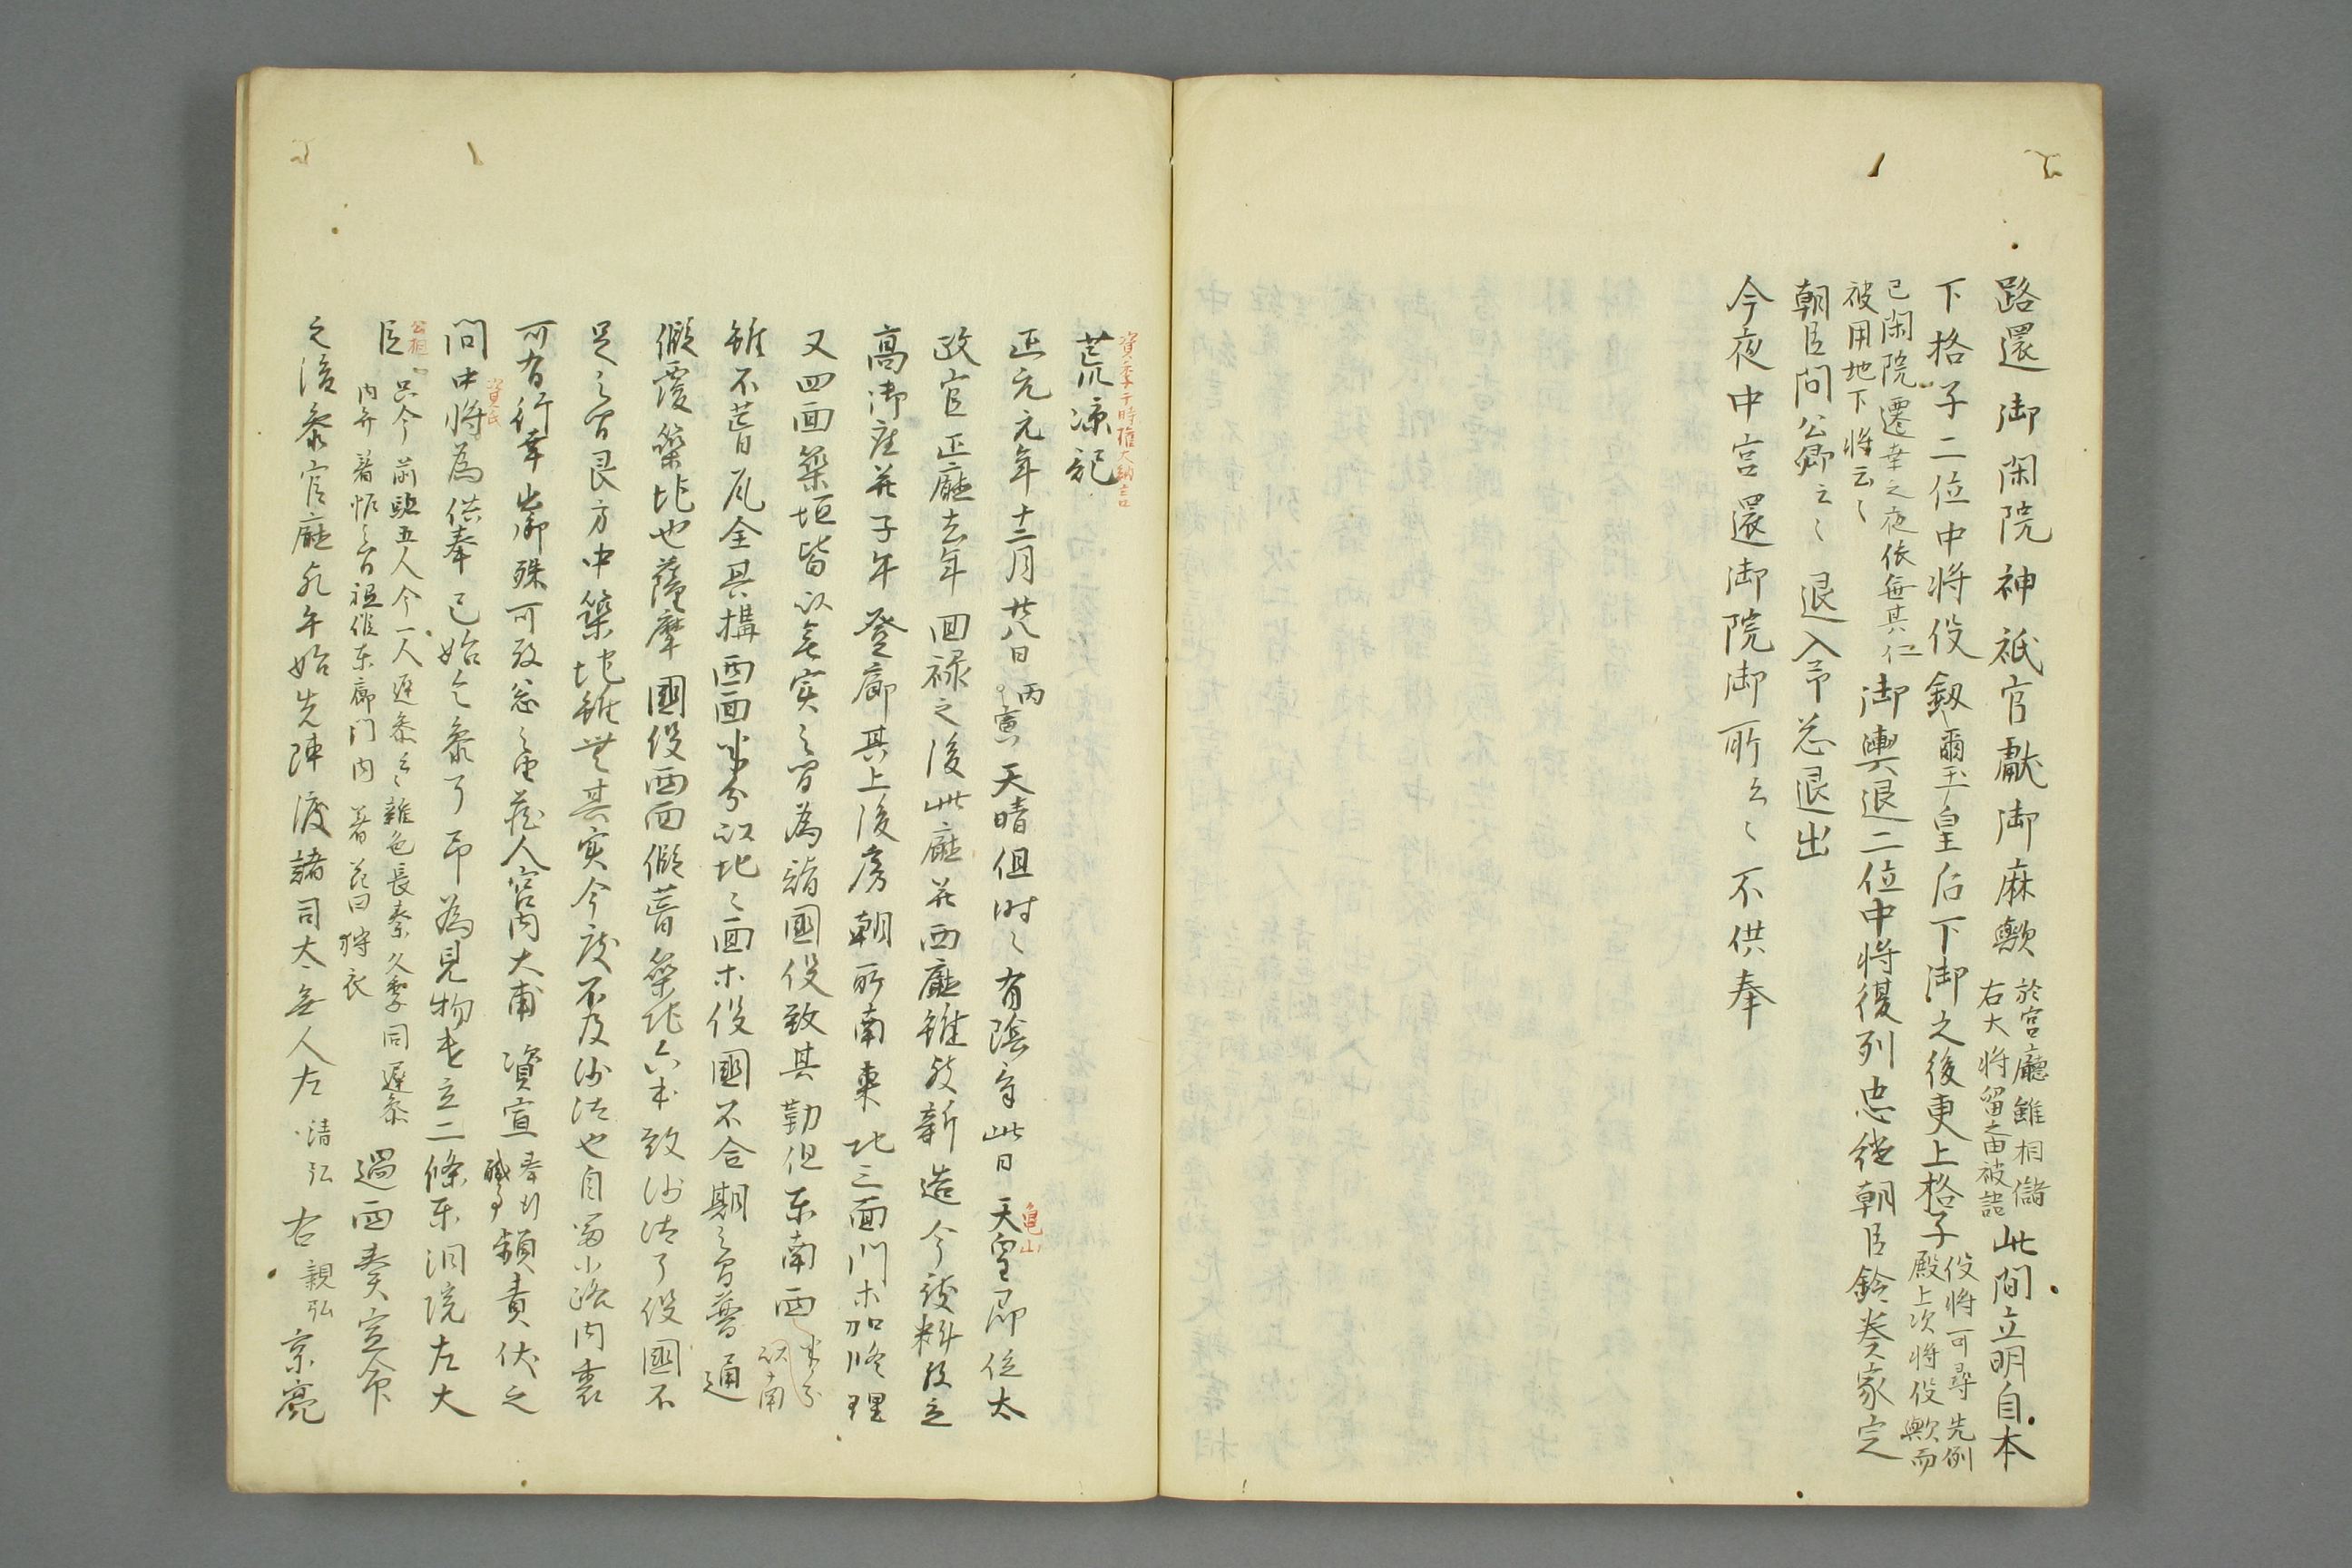 路還御閑院神祇官献御麻歟於官廳雖相儲右大将留之由被諮此間立明自本
下格子二位中将役釼璽玉皇后下御之後更上格子役将可尋先例殿上次将役歟而
已閑院遷幸之夜依無其仁被用地下将云〻御輿退二位中将復列忠継朝臣鈴奏家定
朝臣問公卿云〻退入帘忩退出
今夜中宮還御院御所云〻不供奉
荒凉記
資季于時権大納言
正元元年十二月廿八日丙寅天晴但時〻有陰气此日天皇即位太
亀山
政官正廳去年回禄之後此廳并西廳雖殺新造今被料殺立
高御座并子午登廊其上後房朝所南東北三面門等加修理
又四面築垣皆以無実之間為諸国役致其勤但東南西半分以南
雖不葺瓦全具構西面半分以北〻面等役国不合期之間普通
假覆築垣也薩摩国役西面假葺築垣六本致沙汰了役国不
足之間艮方中築垣雖無其実今度不及沙汰也自冨小路内裏
可有行幸出御殊可致忩之由蔵人宮内大輔資宣奉行職事頻責伏之
間中将為供奉巳始已参了帘為見物車立二條東洞院左大
資氏
臣只今前駈五人今一人遅参云〻雑色長秦久季同遅参内弁着帳之間祖候東廊門内着花田狩衣過西奏宣命
公相
之後参官廳于午始先陣渡諸司大〻無人左清弘右親弘京亮